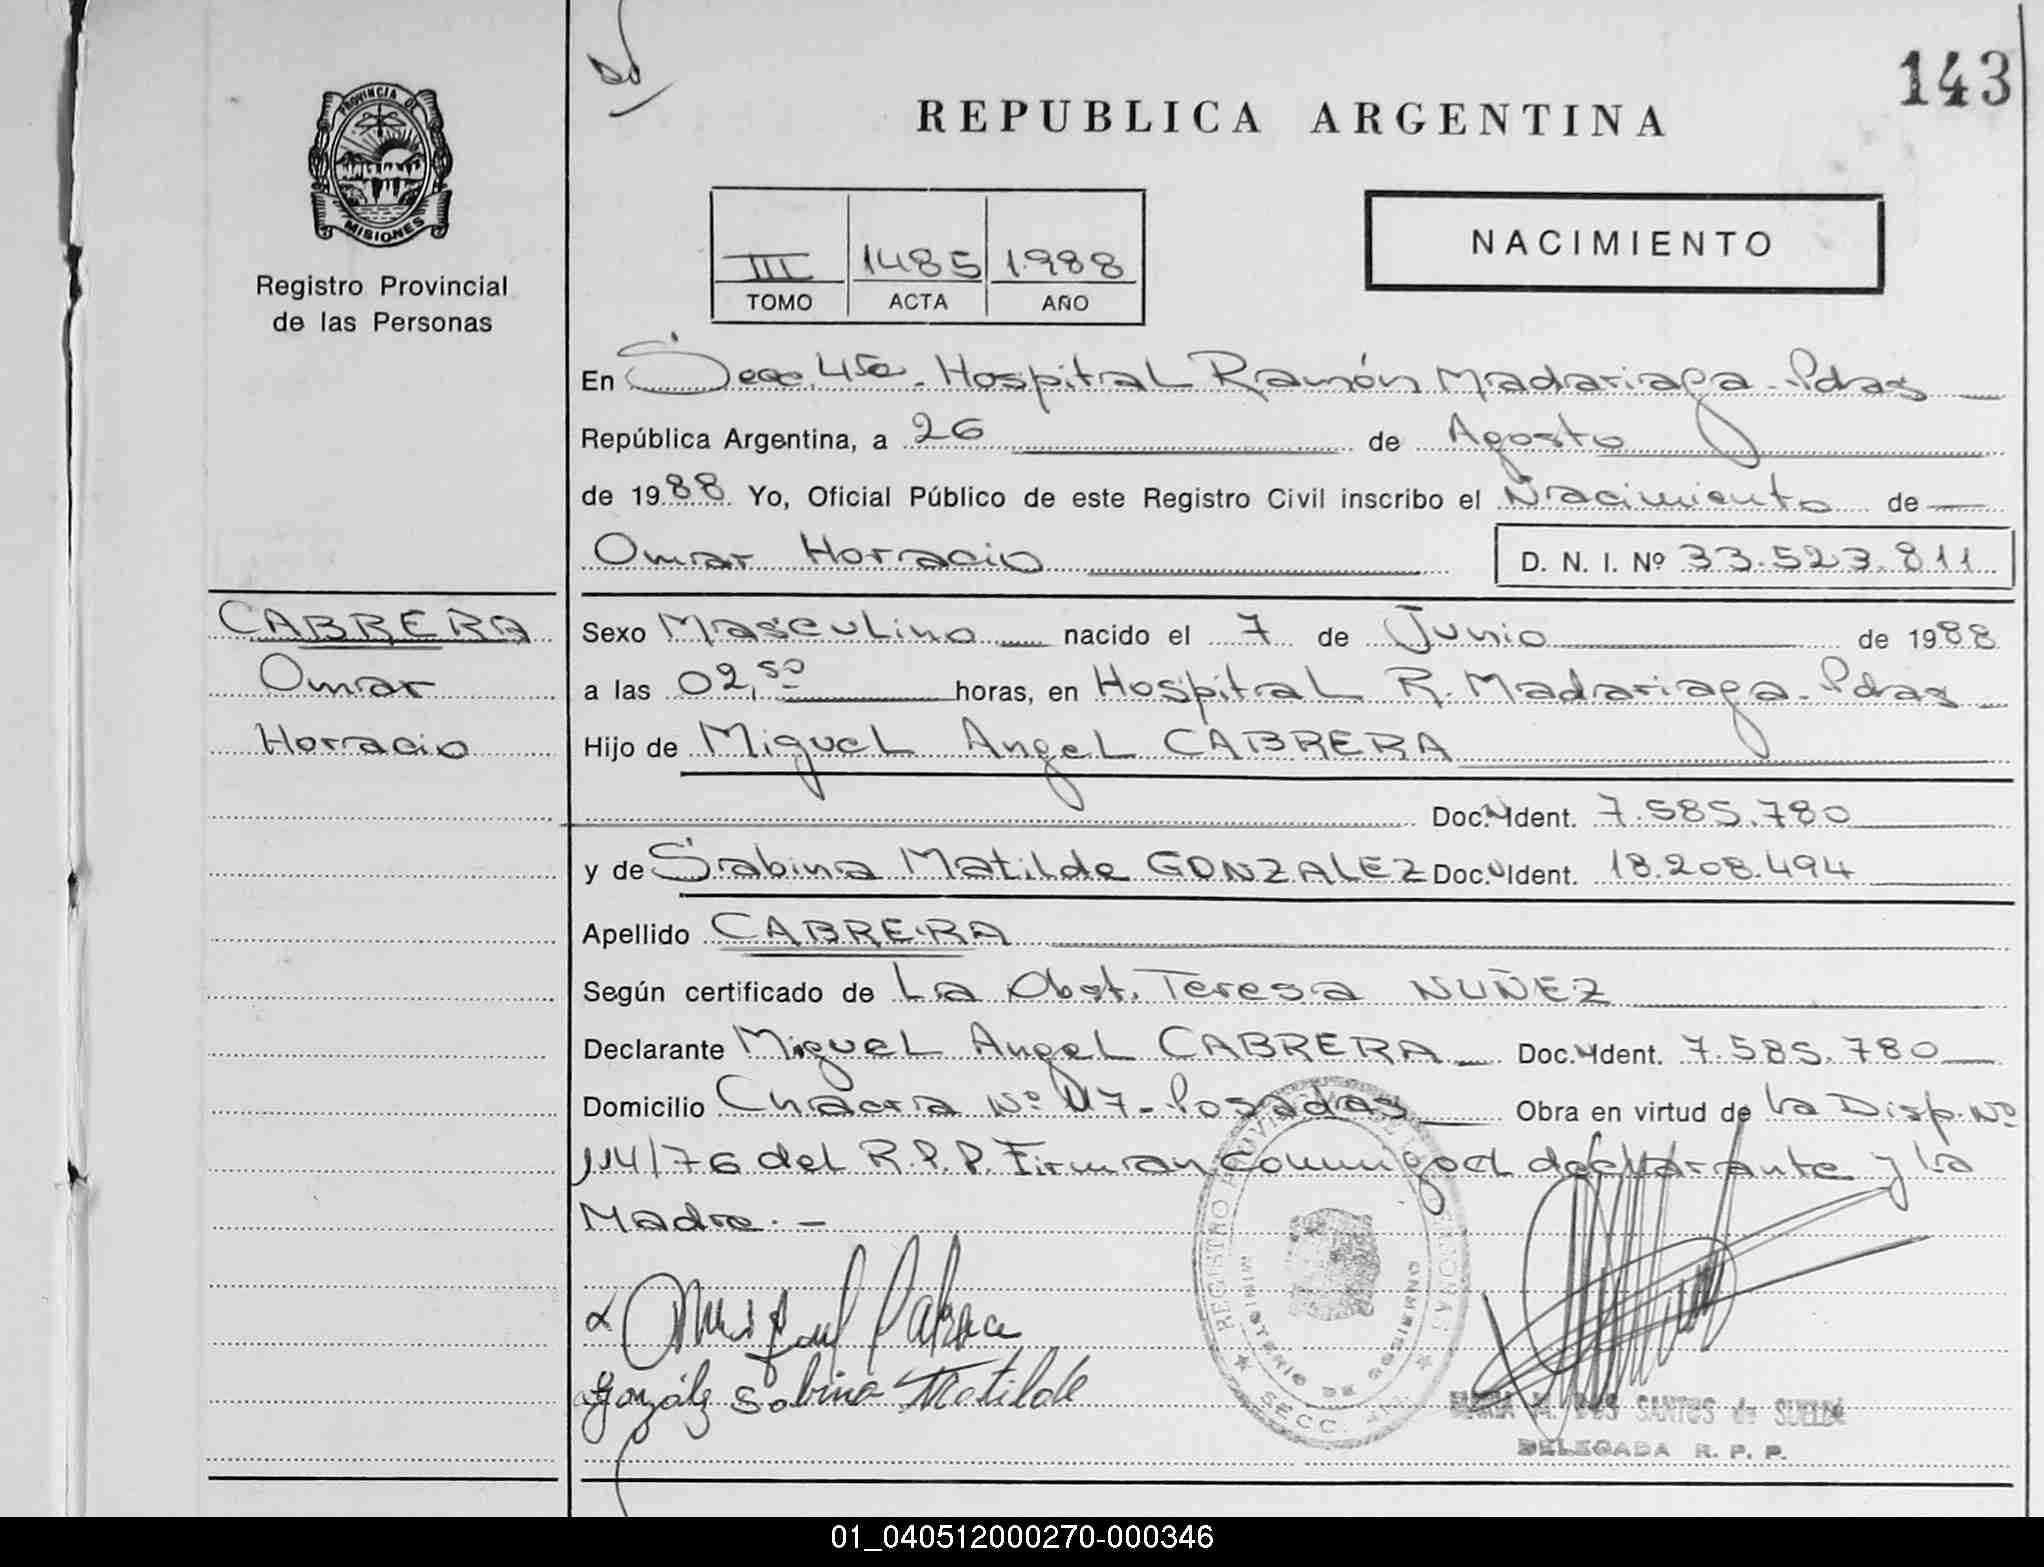 143
PROVINCIA DE
MISIONES
Registro Provincial
de las Personas
REPUBLICA ARGENTINA
NACIMIENTO
III 1485 1.988
TOMO ACTA AÑO
En Secc. 4ta. Hospital Ramón Madariaga - Pdas
República Argentina, a 26 de Agosto
de 1988 Yo, Oficial Público de este Registro Civil inscribo el Nacimiento de
Omar Horacio D. N. I. Nº 33.523.811
CABRERA
Omar
Horacio
Sexo Masculino nacido el 7 de Junio de 1988
a las 02,50 horas, en Hospital R. Madariaga - Pdas
Hijo de Miguel Angel CABRERA
Doc. Ident. 7.585.780
y de Sabina Matilde GONZALEZ Doc. Ident. 18.208.494
Apellido CABRERA
Según certificado de La Obst. Teresa NUÑEZ
Declarante Miguel Angel CABRERA Doc. Ident. 7.585.780
Domicilio Chacra Nº 117 - Posadas Obra en virtud de la Disp. Nº
114/76 del R.P.P. Firman conmigo el declarante y la
Madre. -
Miguel Cabrera
González Sabina Matilde
REGISTRO
MINISTERIO DE GOBIERNO
SECC.
MARIA M. DOS SANTOS de SUELDO
DELEGADA R. P. P.
01_040512000270-000346